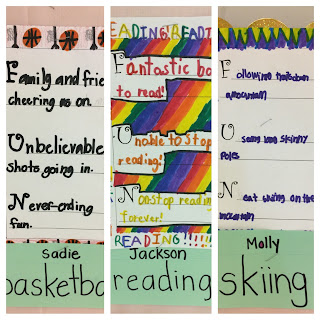 Family and frie
cheering us on.
Unbelievable
shots going in.
Never-ending
fun.
Sadie
basketba
READING!READIN
Fantastic bo
to read!
Unable to stop
reading!
Nonstop reading
forever!
READING!!!!!!
Jackson
reading
Following
a mountain
Using long skinny
Poles
Neat skiing on the
mountain
Molly
skiing